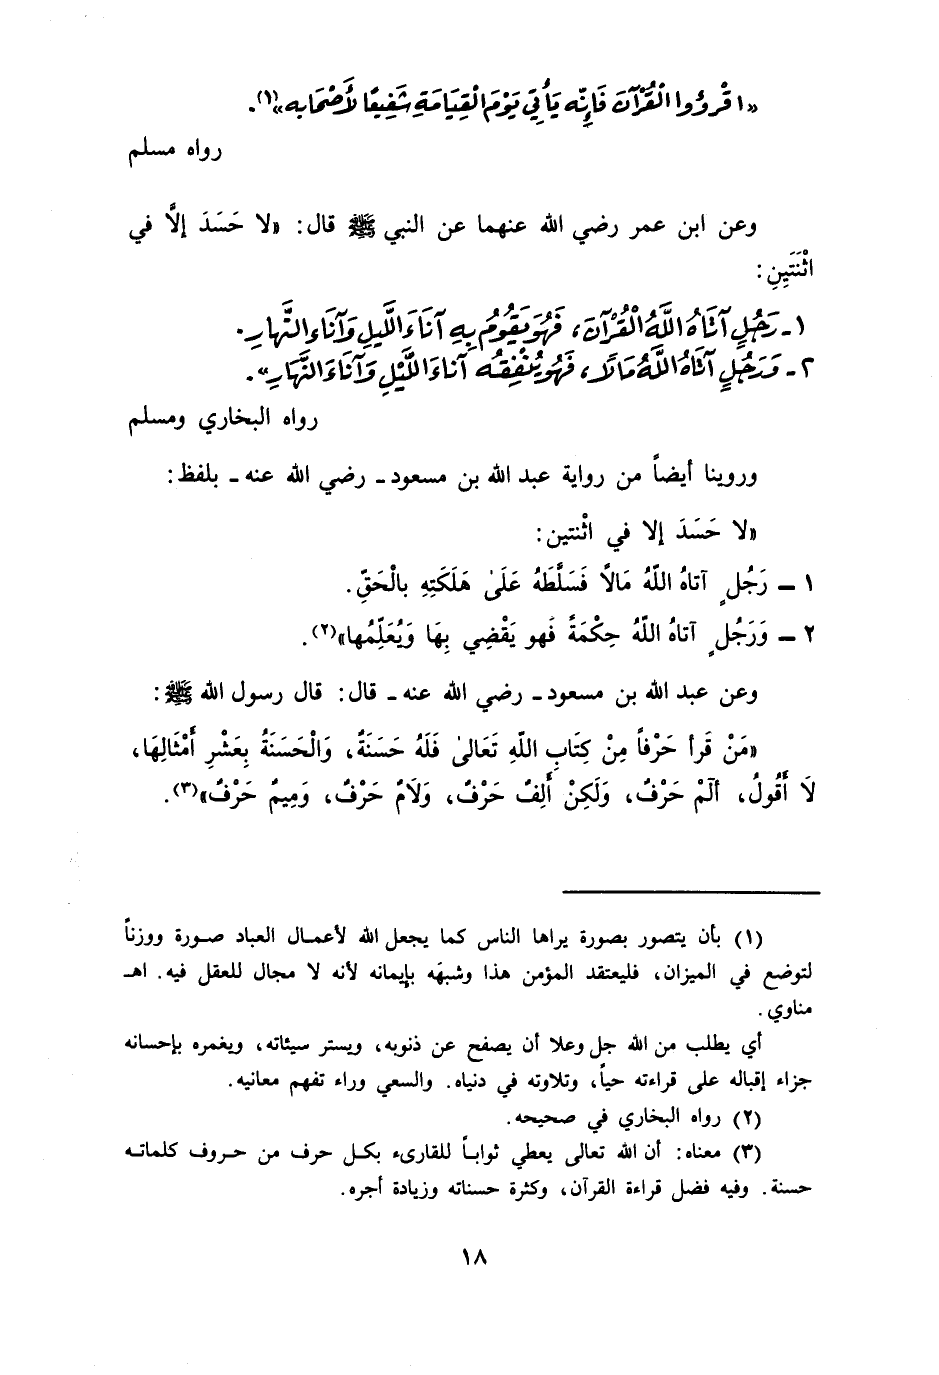 «اقْرؤُوا الْقُرْآنَ فَإِنّه يَأْتِي يَوْمَ الْقِيَامَةِ شَفِيعًا لأَصْحَابِه»(١).
رواه مسلم
وعن ابن عمر رضي الله عنهما عن النبي ﷺ قال: «لا حَسَدَ إلَّا في
اثْنَتَينِ:
١ـ رَجُلٍ آتَاهُ اللَّهُ الْقُرْآنَ، فَهُوَ يَقُومُ بِهِ آنَاءَ اللَّيلِ وَآنَاءَ النَّهارِ.
٢ـ وَرَجُلٍ آتَاهُ اللَّهُ مَالًا، فَهُوَ يُنْفِقُه آناءَ اللَّيْلِ وَآنَاءَ النَّهَارِ».
رواه البخاري ومسلم
وروينا أيضاً من رواية عبد الله بن مسعود ـ رضي الله عنه ـ بلفظ:
«لا حَسَدَ إلا في اثْنتين:
١ ـ رَجُلٍ آتاهُ اللّهُ مَالاً فَسَلَّطَهُ عَلَىٰ هَلَكَتِهِ بالْحَقِّ.
٢ ـ وَرَجُلٍ آتاهُ اللّهُ حِكْمَةً فَهو يَقْضِي بِهَا وَيُعَلِّمُها»(٢).
وعن عبد الله بن مسعود ـ رضي الله عنه ـ قال: قال رسول الله ﷺ:
«مَنْ قَرأَ حَرْفاً مِنْ كِتَابِ اللّهِ تَعَالىٰ فَلَهُ حَسَنَةٌ، وَالْحَسَنَةُ بِعَشْرِ أَمْثَالِهَا،
لَا أَقُولُ، ألَمْ حَرْفٌ، وَلَكِنْ أَلِفٌ حَرْفٌ، وَلَامٌ حَرْفٌ، وَمِيمٌ حَرْفٌ»(٣).
(١) بأن يتصور بصورة يراها الناس كما يجعل الله لأعمال العباد صورة ووزناً
لتوضع في الميزان، فليعتقد المؤمن هذا وشبهَه بإيمانه لأنه لا مجال للعقل فيه. اهـ
مناوي.
أي يطلب من الله جل وعلا أن يصفح عن ذنوبه، ويستر سيئاته، ويغمره بإحسانه
جزاء إقباله على قراءته حياً، وتلاوته في دنياه. والسعي وراء تفهم معانيه.
(٢) رواه البخاري في صحيحه.
(٣) معناه: أن الله تعالى يعطي ثواباً للقارىء بكل حرف من حروف كلماته
حسنة. وفيه فضل قراءة القرآن، وكثرة حسناته وزيادة أجره.
١٨